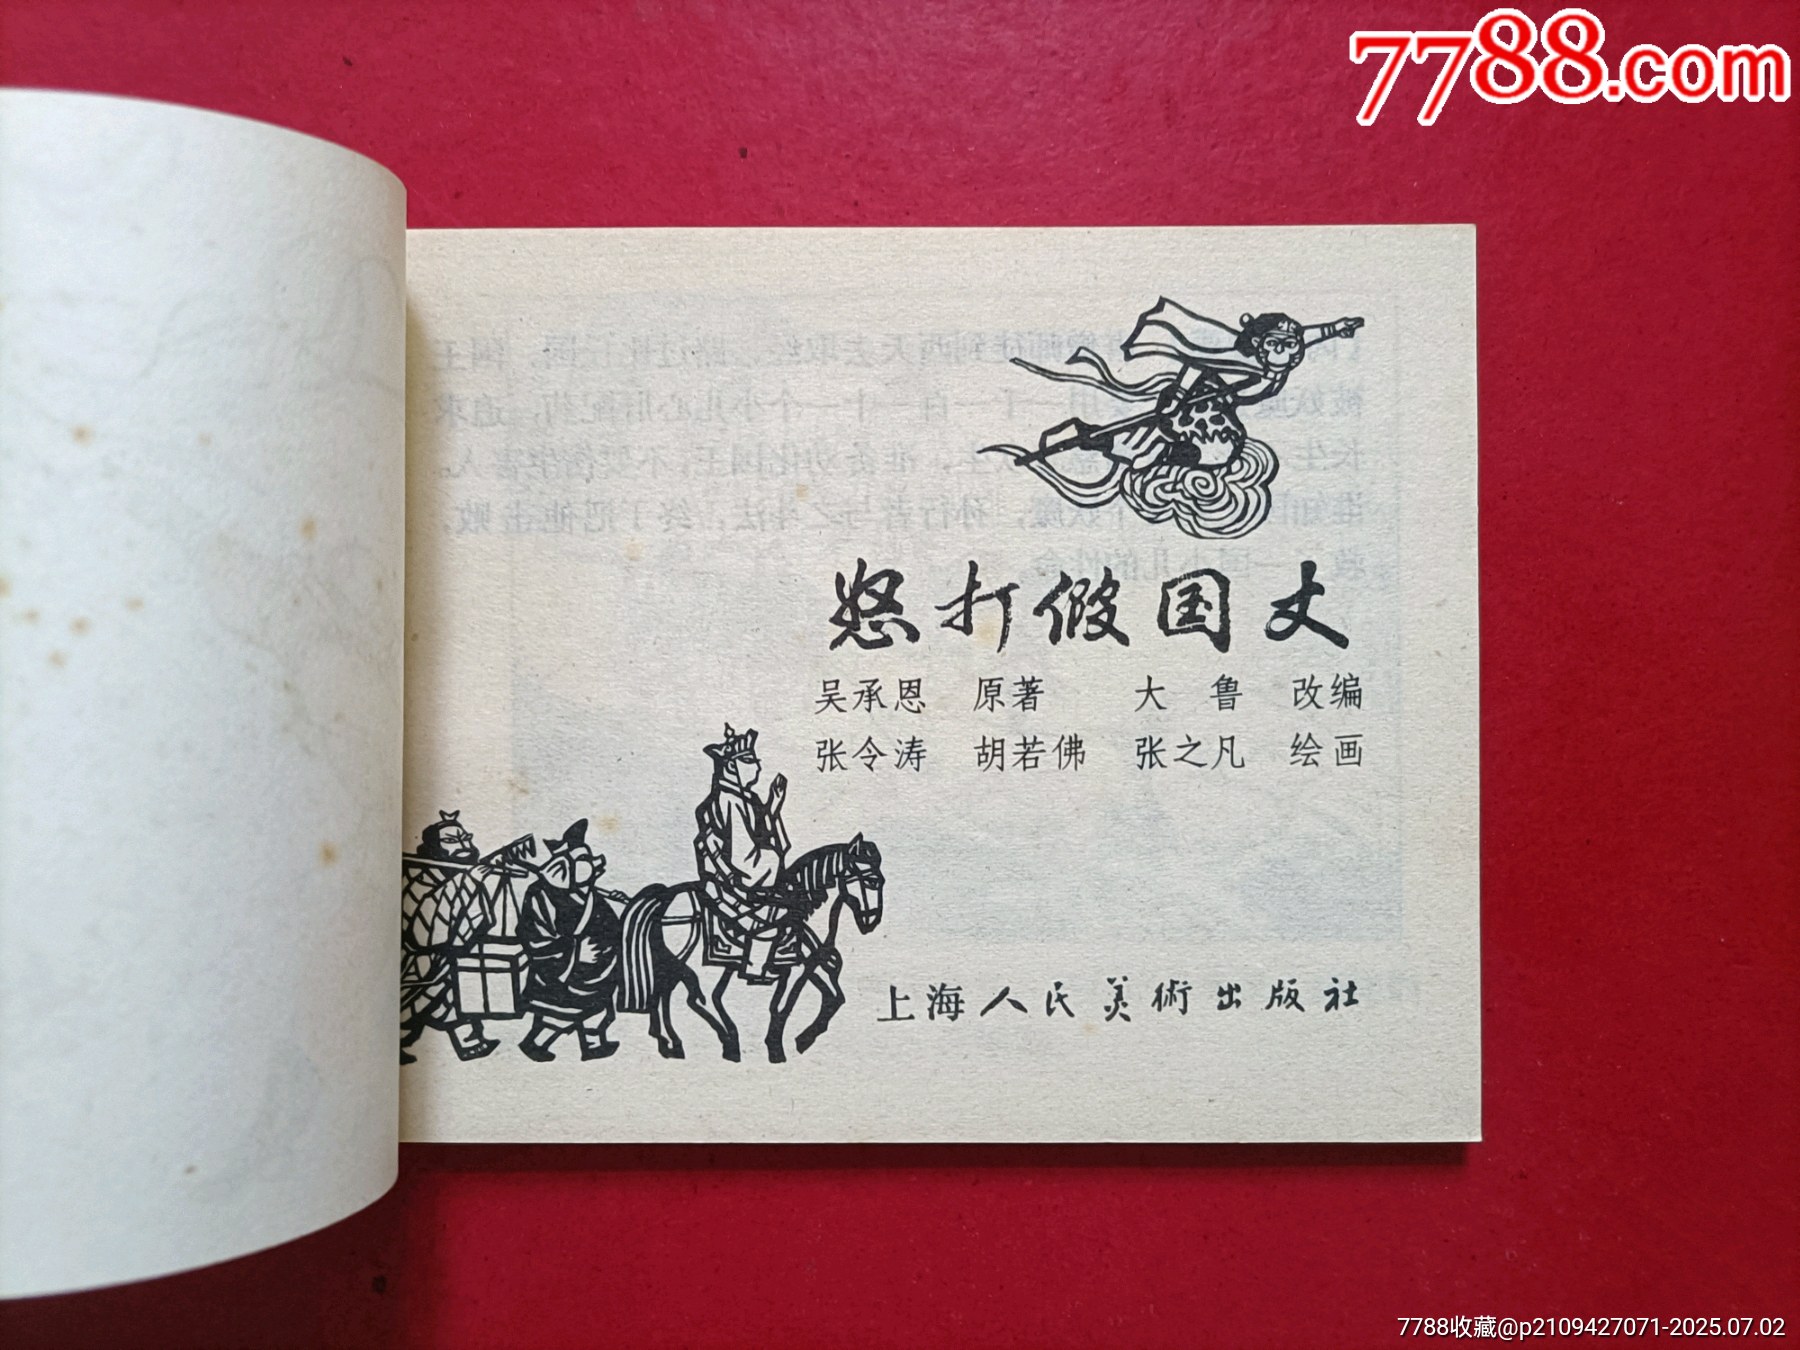 7788.com
怒打假国丈
吴承恩 原著 大鲁 改编
张令涛 胡若佛 张之凡 绘画
上海人民美術出版社
7788收藏@p2109427071-2025.07.02